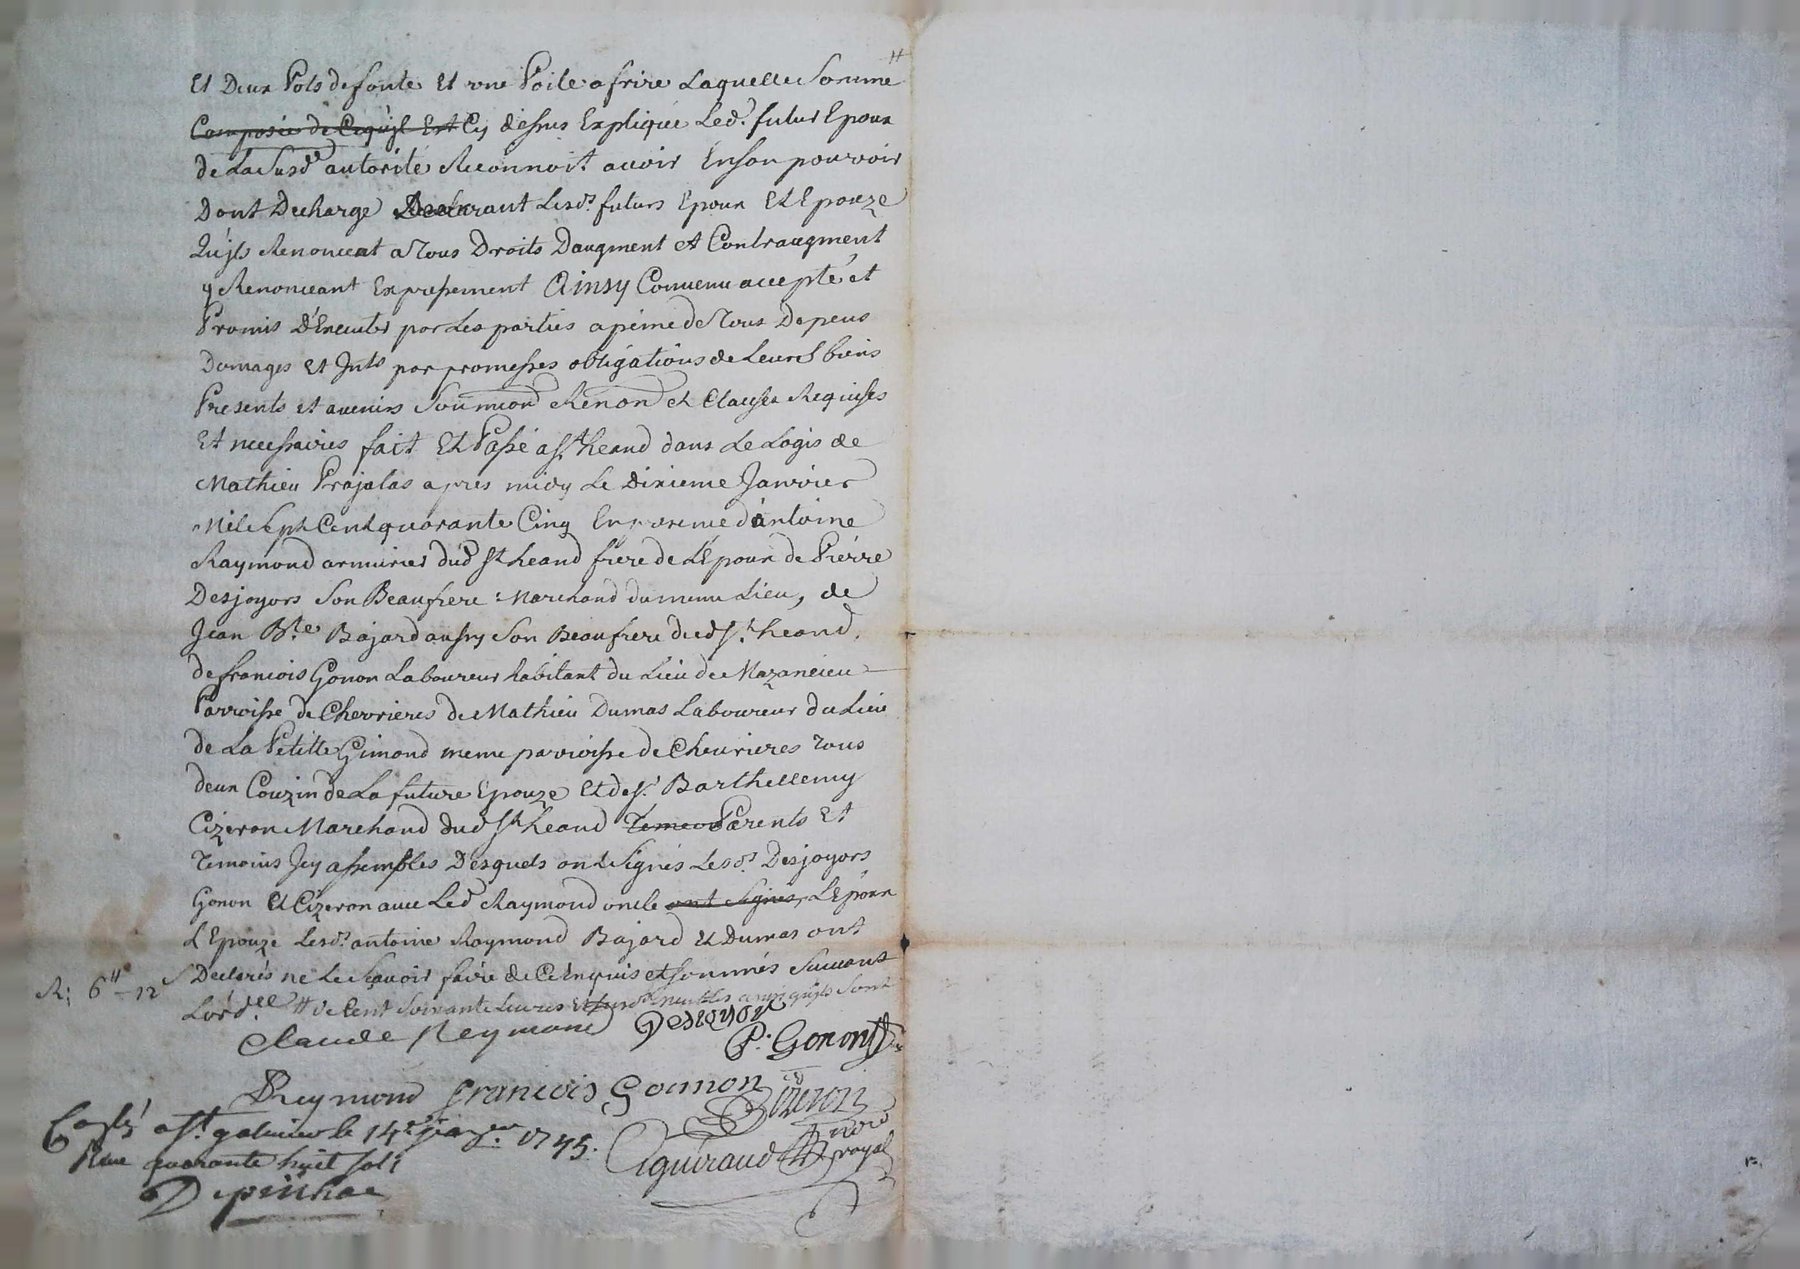 Et Deux Pots de fonte et une Poile a frire Laquelle Somme #
Composée de Ce qu'jl Est Cy dessus Expliquée Led. futur Epoux
de La Susd.e autorité Reconnoit avoir En son pouvoir
Dont Decharge Declarant Lesd.s futurs Epoux Et Epouze
Qu'jls Renoncent a Tous Droits Daugment et Contraugment
y Renonceant Expressement Ainsy Convenu accepté et
Promis D'Executer par Les parties a peine de Tous Depens
Domages Et Jnts par promesses obligations de Leurs biens
Presents et avenirs Soumiond Renond et Clauses Requises
Et necessaires fait Et Passé a St heand dans Le Logis de
Mathieu Prajalas apres midy Le Dixieme Janvier
Mil Sept Cent quarante Cinq En presence d'antoine
Raymond armurier dud St heand frere de L'epoux de Pierre
Desjoyors Son Beaufrere Marchand du meme Lieu, de
Jean Bte Bajard aussy Son Beaufrere dud St heand,
de francois Gonon Laboureur habitant du Lieu de Mazancieu
Parroisse de Chevrieres de Mathieu Dumas Laboureur du Lieu
de La Petitte Gimond meme parroisse de Chevrieres Tous
deux Couzin de La future Epouze Et de Sr Barthellemy
Cizeron Marchand dud St heand Temoo Parents Et
Temoins Jcy assembles Desquels ont Signés Lesd.s Desjoyors
Gonon Et Cizeron avec Led Raymond oncle ont Signés, L'Epoux
L'Epouze Lesd.s antoine Raymond Bajard Et Dumas ont
Declarés ne Le Scavoir faire de Ce Enquis et sommés Suivant
R: 6# 12s
L'ord.ce # de Cent Soixante Livres Et meubles ainsy qu'jls Sont
Claude Reymond Desjoyors
P. Gonon
Reymond francois Gounon Cizeron
Con.lé a St galmier le 14e janver 1745.
Reçu quarante huit sols
Ciguiraud no.re royal
Depinhac